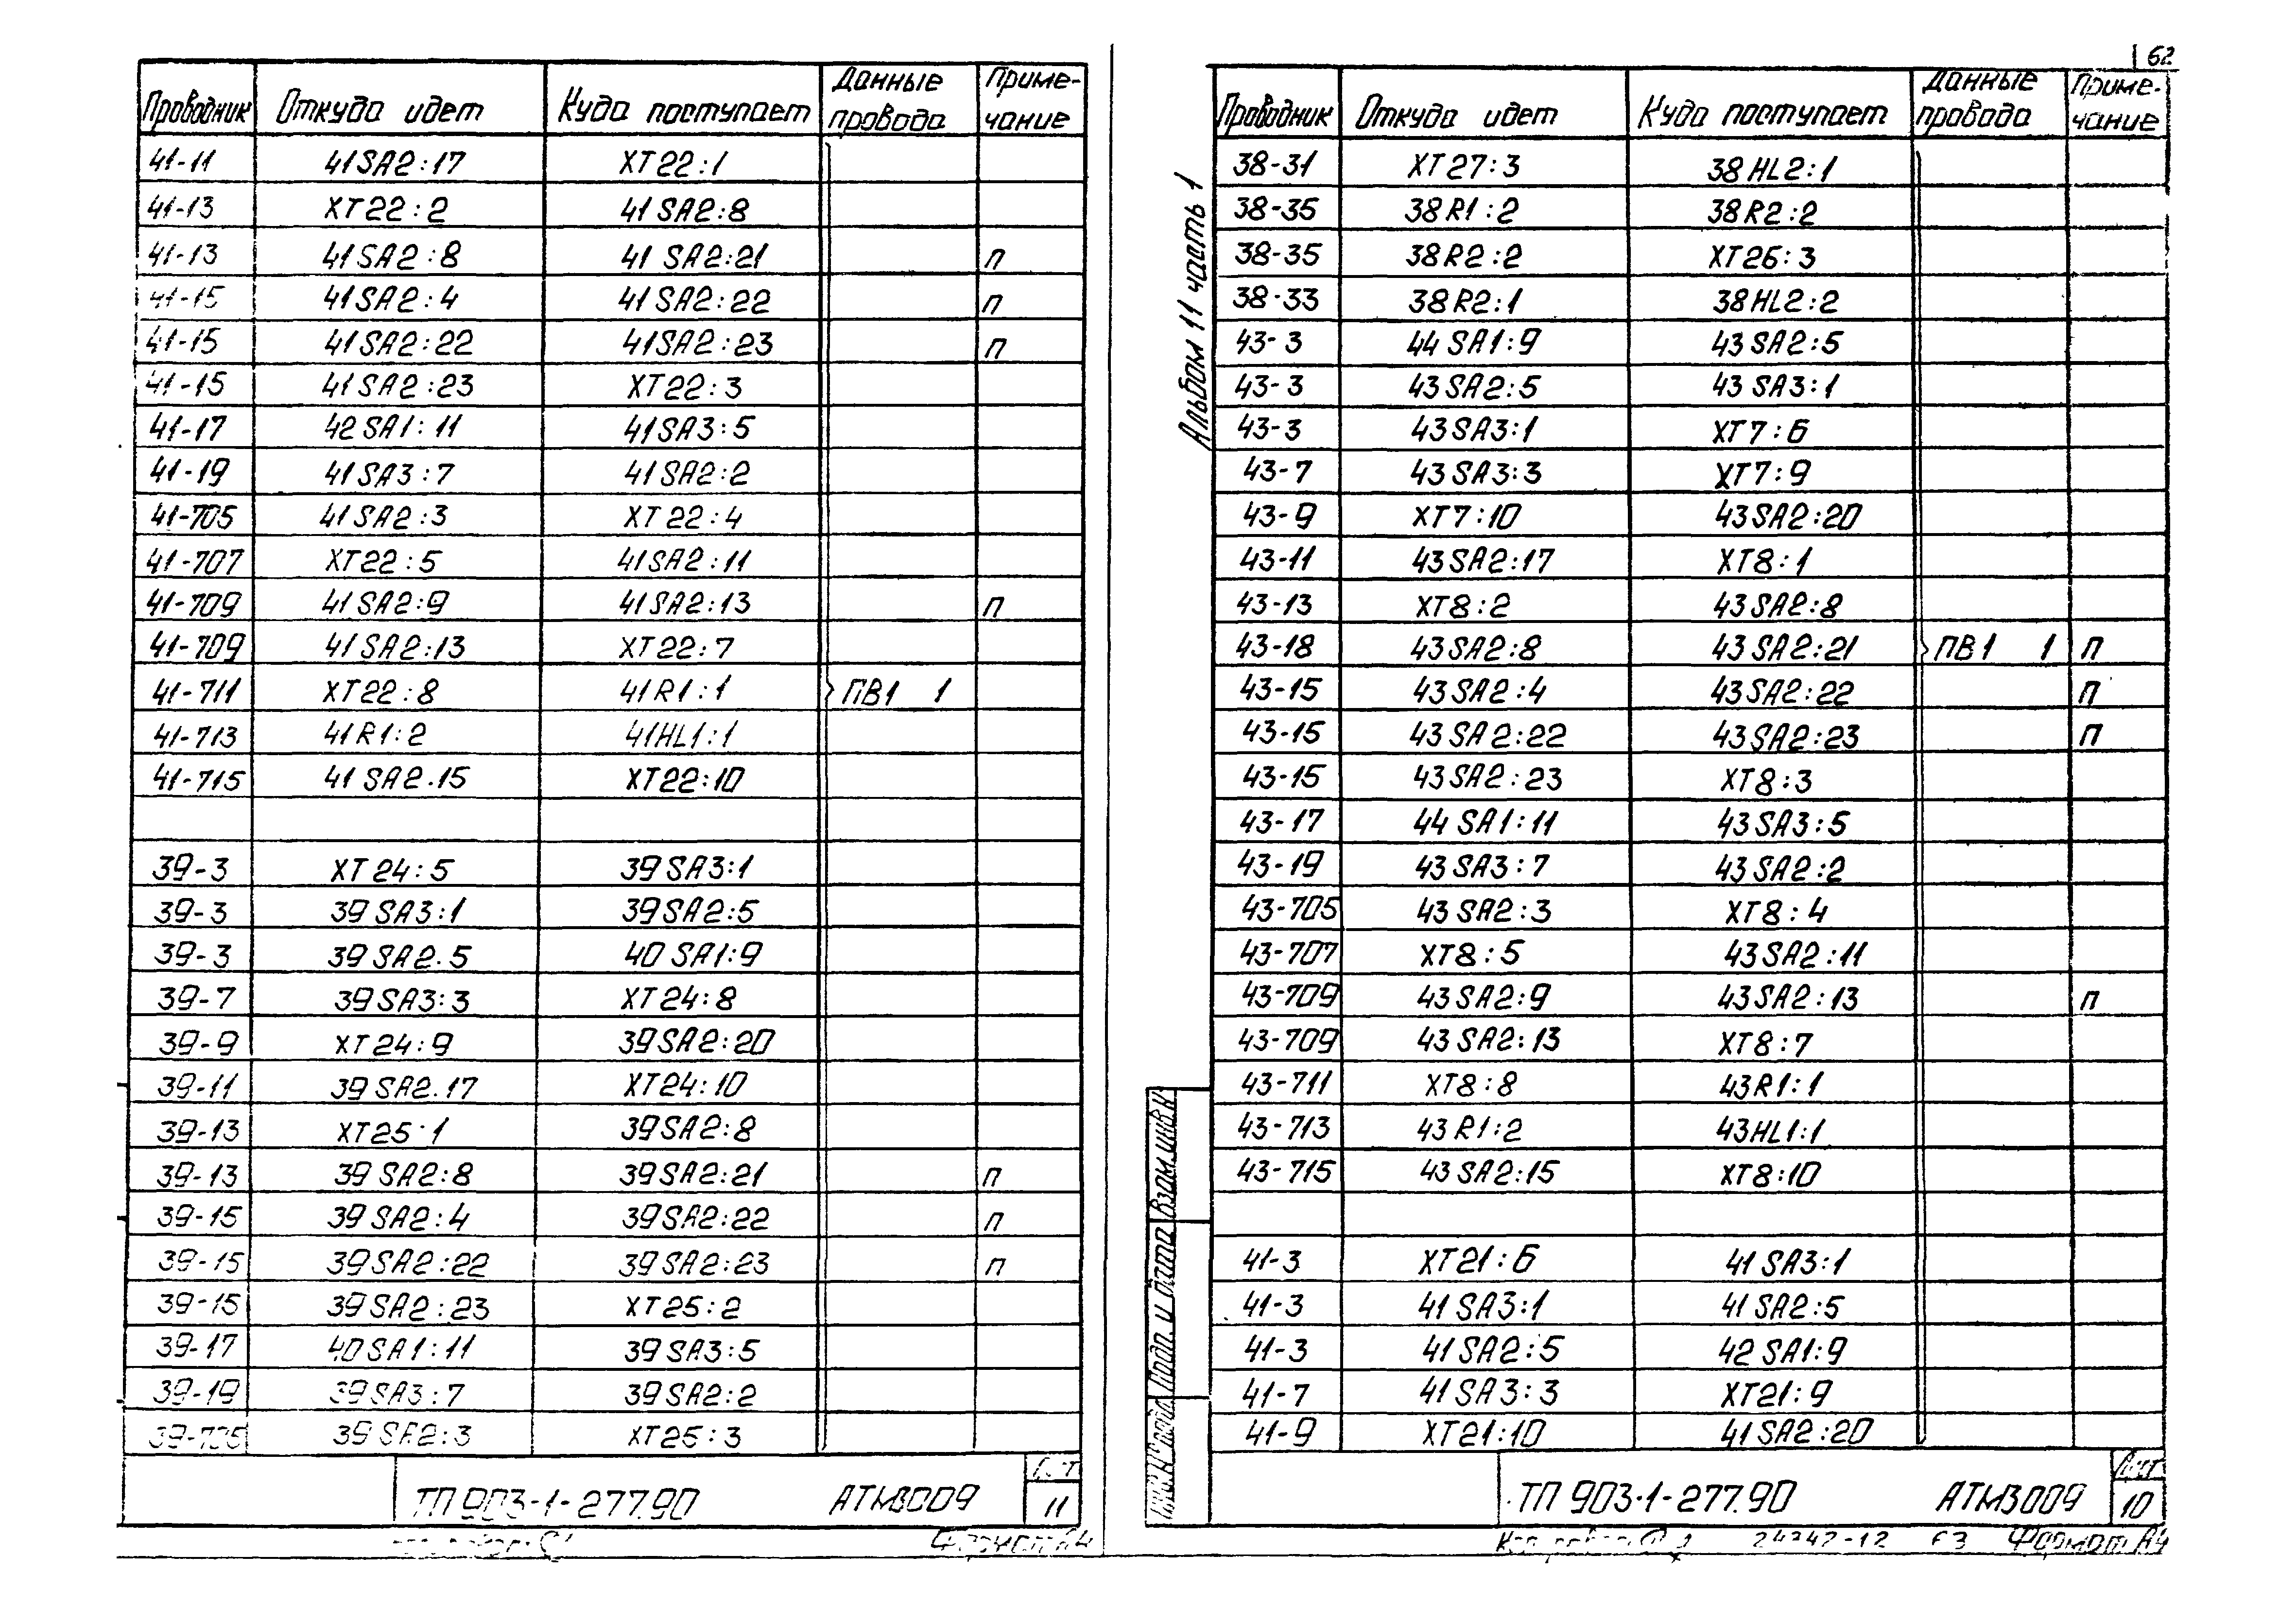 Проводник Откуда идет Куда поступает Данные провода Примечание
41-11 41SA2:17 XT22:1
41-13 XT22:2 41SA2:8
41-13 41SA2:8 41SA2:21 п
41-15 41SA2:4 41SA2:22 п
41-15 41SA2:22 41SA2:23 п
41-15 41SA2:23 XT22:3
41-17 42SA1:11 41SA3:5
41-19 41SA3:7 41SA2:2
41-705 41SA2:3 XT22:4
41-707 XT22:5 41SA2:11
41-709 41SA2:9 41SA2:13 п
41-709 41SA2:13 XT22:7
41-711 XT22:8 41R1:1 ПВ1 1
41-713 41R1:2 41HL1:1
41-715 41SA2.15 XT22:10
39-3 XT24:5 39SA3:1
39-3 39SA3:1 39SA2:5
39-3 39SA2.5 40SA1:9
39-7 39SA3:3 XT24:8
39-9 XT24:9 39SA2:20
39-11 39SA2.17 XT24:10
39-13 XT25·1 39SA2:8
39-13 39SA2:8 39SA2:21 п
39-15 39SA2:4 39SA2:22 п
39-15 39SA2:22 39SA2:23 п
39-15 39SA2:23 XT25:2
39-17 40SA1:11 39SA3:5
39-19 39SA3:7 39SA2:2
39-705 39SA2:3 XT25:3
ТП 903-1-277.90 АТМ3009 Лист 11
Формат А4
62
Альбом 11 часть 1
Проводник Откуда идет Куда поступает Данные провода Примечание
38-31 XT27:3 38HL2:1
38-35 38R1:2 38R2:2
38-35 38R2:2 XT26:3
38-33 38R2:1 38HL2:2
43-3 44SA1:9 43SA2:5
43-3 43SA2:5 43SA3:1
43-3 43SA3:1 XT7:6
43-7 43SA3:3 XT7:9
43-9 XT7:10 43SA2:20
43-11 43SA2:17 XT8:1
43-13 XT8:2 43SA2:8
43-18 43SA2:8 43SA2:21 ПВ1 1 п
43-15 43SA2:4 43SA2:22 п
43-15 43SA2:22 43SA2:23 п
43-15 43SA2:23 XT8:3
43-17 44SA1:11 43SA3:5
43-19 43SA3:7 43SA2:2
43-705 43SA2:3 XT8:4
43-707 XT8:5 43SA2:11
43-709 43SA2:9 43SA2:13 п
43-709 43SA2:13 XT8:7
43-711 XT8:8 43R1:1
43-713 43R1:2 43HL1:1
43-715 43SA2:15 XT8:10
41-3 XT21:6 41SA3:1
41-3 41SA3:1 41SA2:5
41-3 41SA2:5 42SA1:9
41-7 41SA3:3 XT21:9
41-9 XT21:10 41SA2:20
Взам.инв.N
Подп. и дата
ТП 903-1-277.90 АТМ3009 Лист 10
24347-12 63 Формат А4